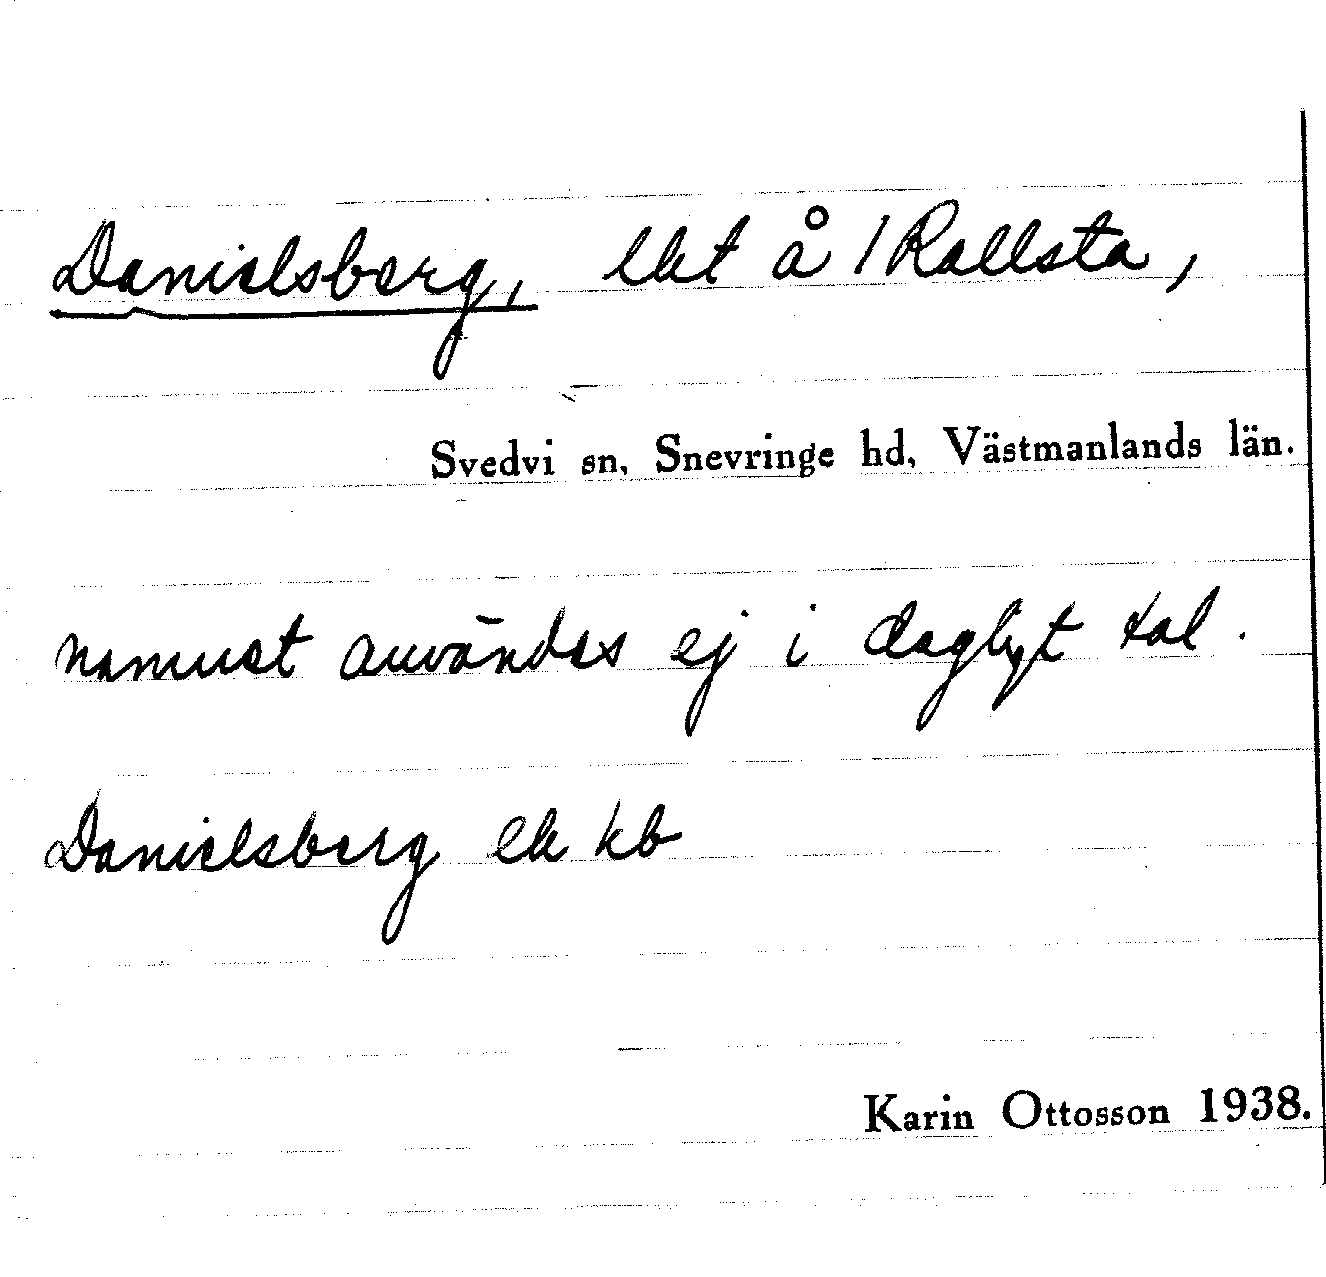 Danielsberg, lht å 1 Rallsta,
Svedvi sn, Snevringe hd, Västmanlands län.
namnet användes ej i dagligt tal.
Danielsberg ek kb
Karin Ottosson 1938.